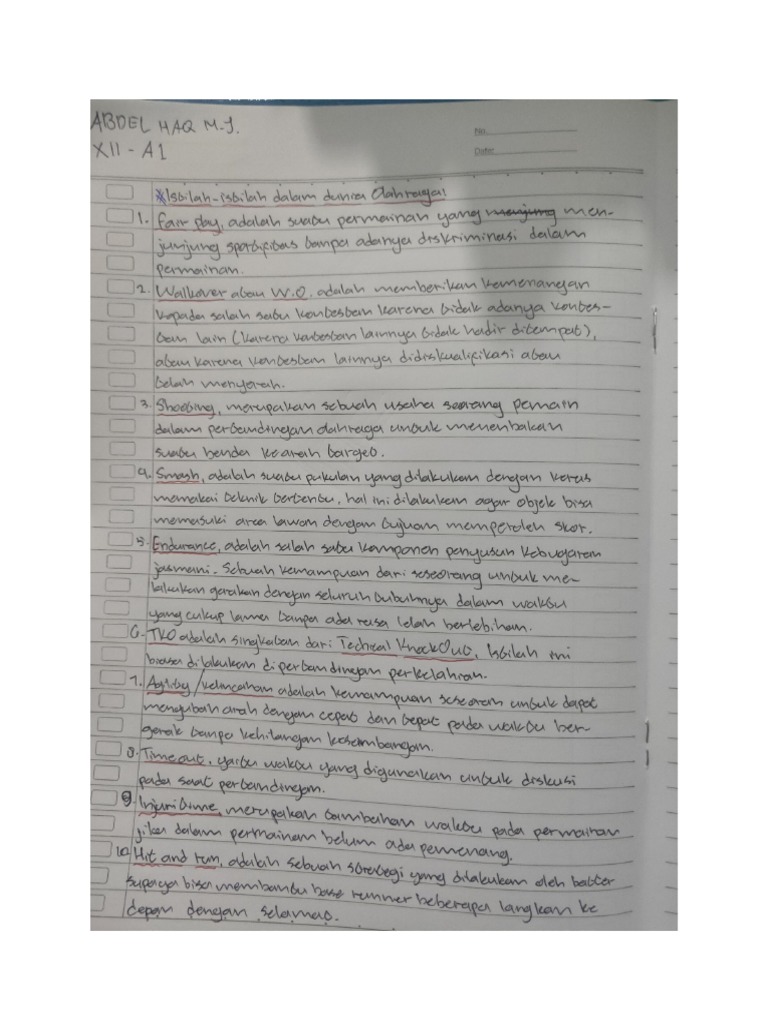 ABDEL HAQ M.J.
XII - A1
No.
Date:
*Istilah-istilah dalam dunia Olahraga!
1. Fair play, adalah suatu permainan yang menjung men-
junjung sportifitas tanpa adanya diskriminasi dalam
permainan.
2. Walkover atau W.O. adalah memberikan kemenangan
kepada salah satu kontestan karena tidak adanya kontes-
tan lain (karena kontestan lainnya tidak hadir ditempat),
atau karena kontestan lainnya didiskualifikasi atau
telah menyerah.
3. Shooting, merupakan sebuah usaha seorang pemain
dalam pertandingan olahraga untuk menembakan
suatu benda kearah target.
4. Smash, adalah suatu pukulan yang dilakukan dengan keras
memakai teknik tertentu, hal ini dilakukan agar objek bisa
memasuki area lawan dengan tujuan memperoleh skor.
5. Endurance, adalah salah satu komponen penyusun kebugaran
jasmani. Sebuah kemampuan dari seseorang untuk me-
lakukan gerakan dengan seluruh tubuhnya dalam waktu
yang cukup lama tanpa ada rasa lelah berlebihan.
6. TKO adalah singkatan dari Techical KnockOut, Istilah ini
biasa dilakukan di pertandingan perkelahian.
7. Agility/kelincahan adalah kemampuan seseoram untuk dapat
mengubah arah dengan cepat dan tepat pada waktu ber-
gerak tanpa kehilangan keseimbangan.
8. Timeout, yaitu waktu yang digunakan untuk diskusi
pada saat pertandingan.
9. Injuri time, merupakan tambahan waktu pada permainan
jika dalam permainan belum ada pemenang.
10. Hit and run, adalah sebuah strategi yang dilakukan oleh batter
supaya bisa membantu base runner beberapa langkah ke
depan dengan selamat.